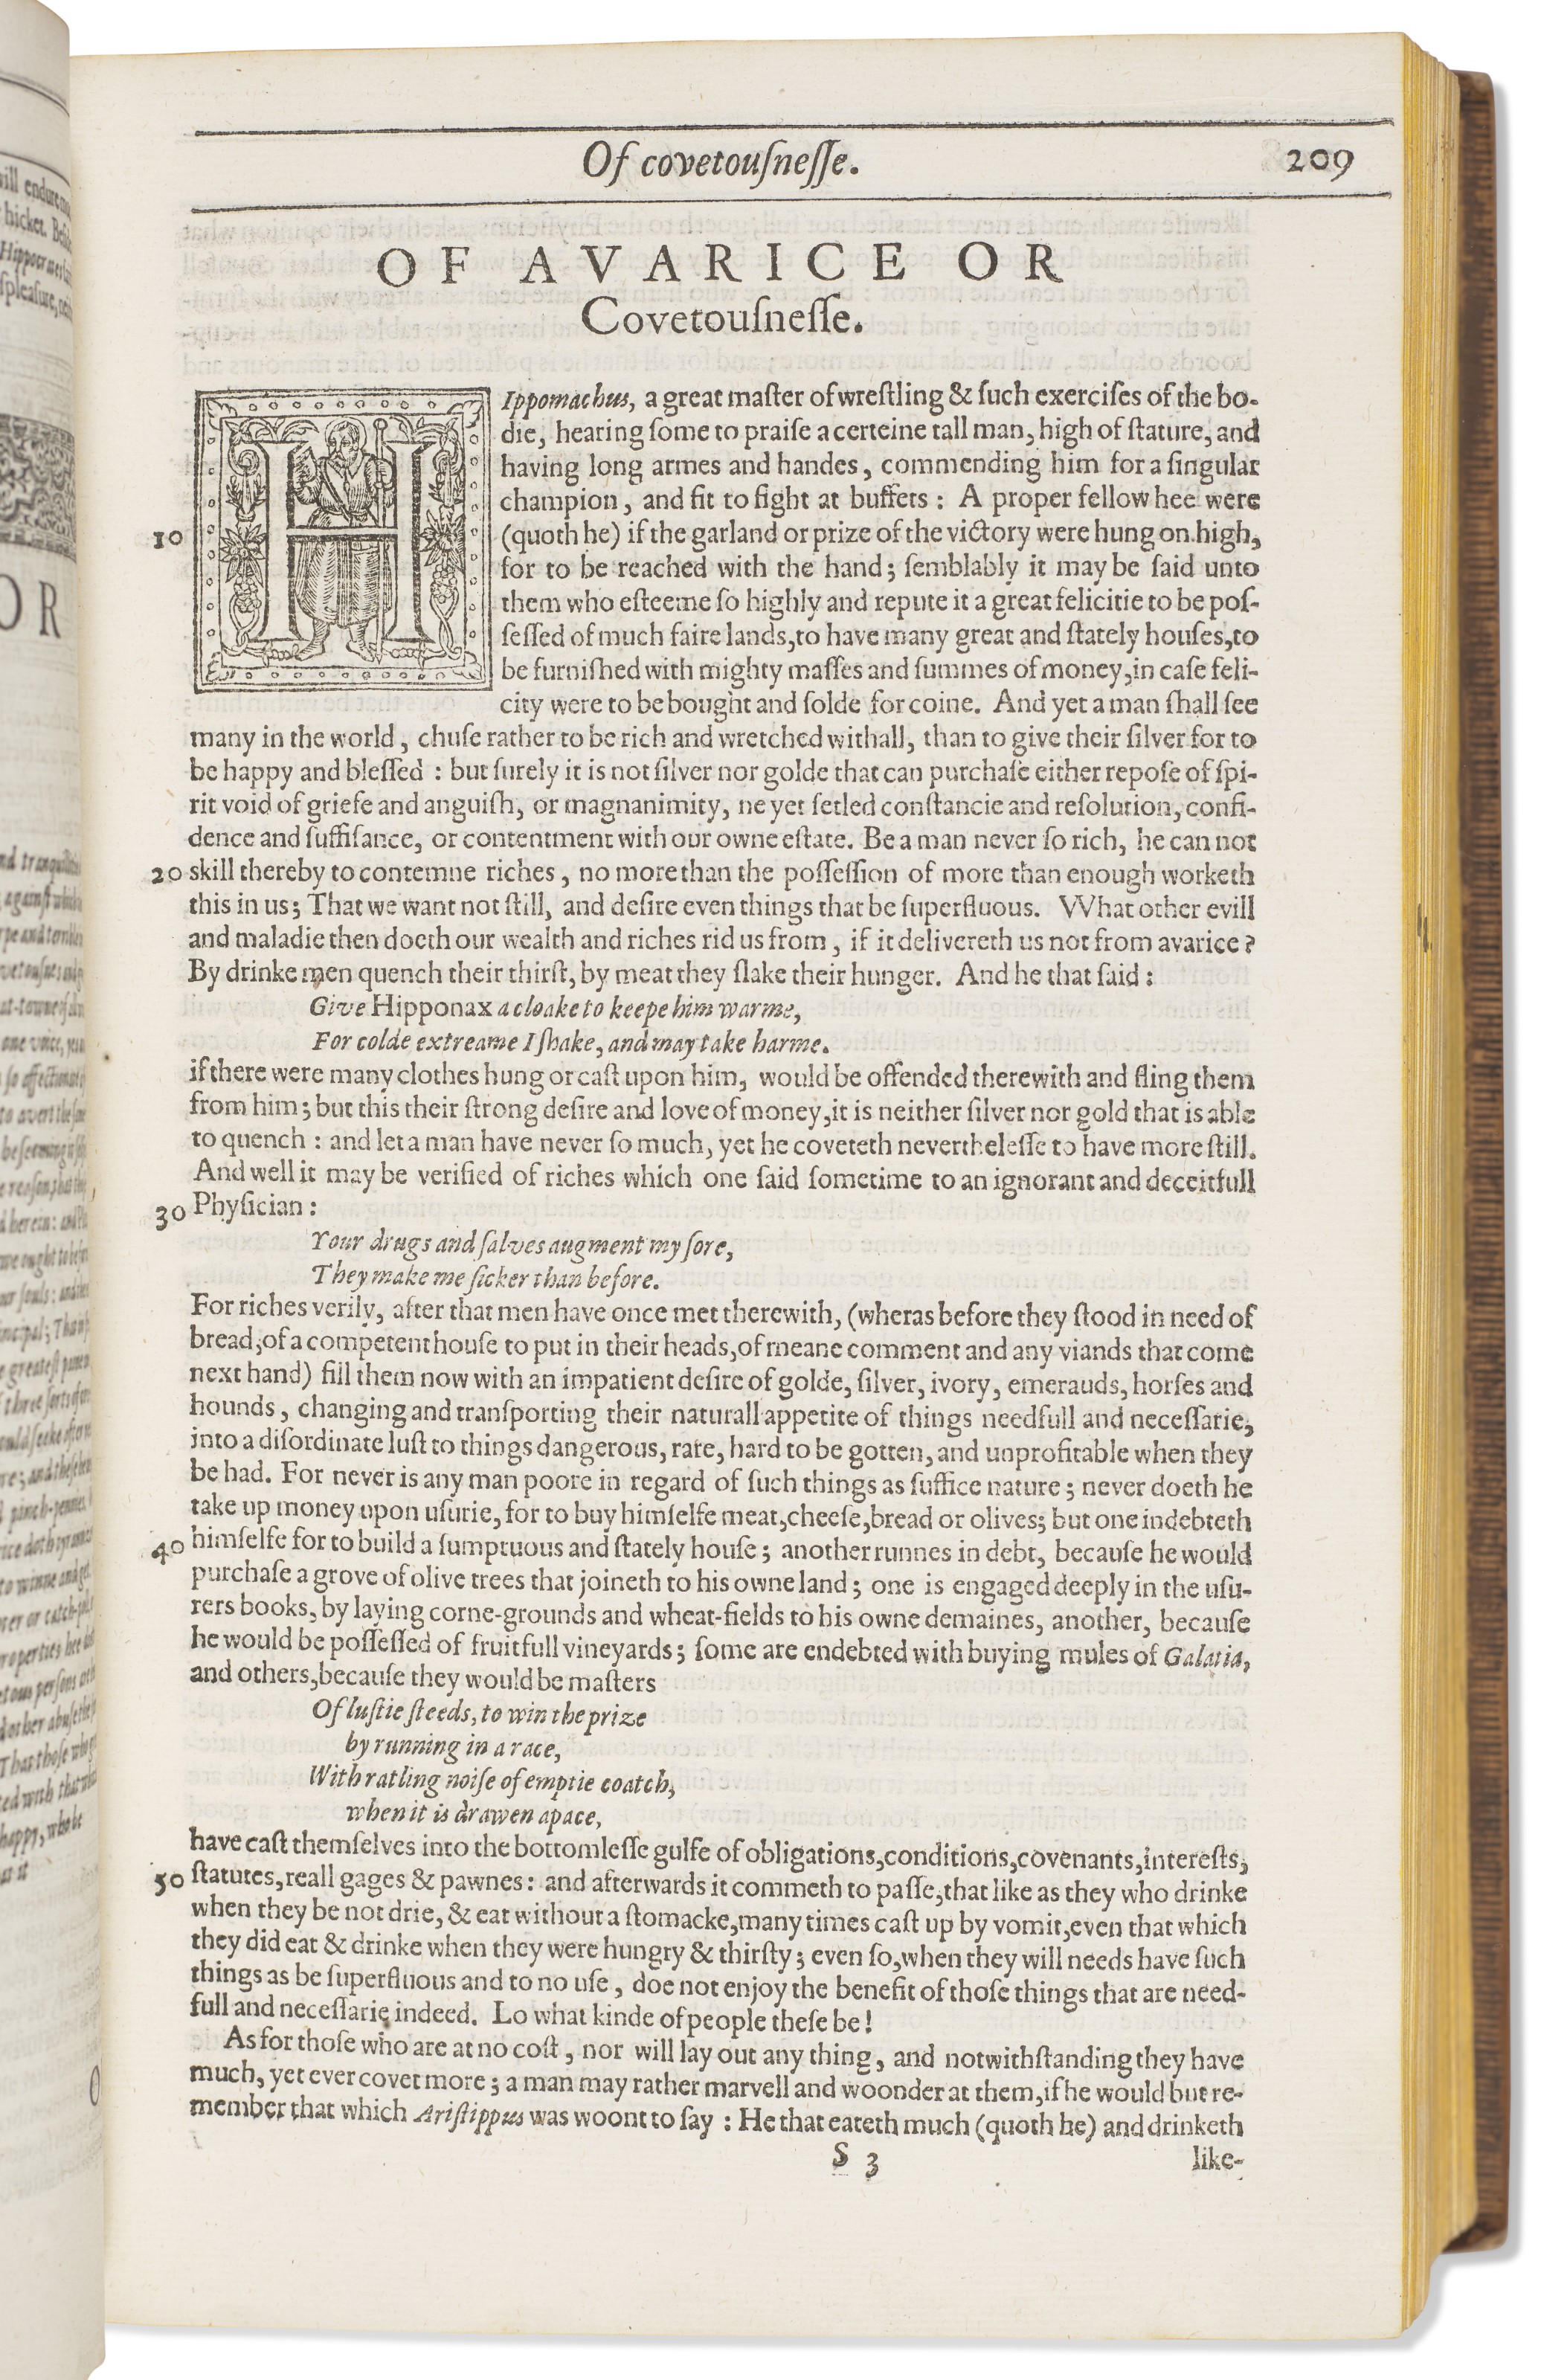 Of covetouſneſſe.
209
OF AVARICE OR
Covetouſneſſe.
HIppomachus, a great maſter of wreſtling & ſuch exerciſes of the bo-
die, hearing ſome to praiſe a certeine tall man, high of ſtature, and
having long armes and handes, commending him for a ſingular
champion, and fit to fight at buffets: A proper fellow hee were
10 (quoth he) if the garland or prize of the victory were hung on high,
for to be reached with the hand; ſemblably it may be ſaid unto
them who eſteeme ſo highly and repute it a great felicitie to be poſ-
ſeſſed of much faire lands, to have many great and ſtately houſes, to
be furniſhed with mighty maſſes and ſummes of money, in caſe feli-
city were to be bought and ſolde for coine. And yet a man ſhall ſee
many in the world, chuſe rather to be rich and wretched withall, than to give their ſilver for to
be happy and bleſſed: but ſurely it is not ſilver nor golde that can purchaſe either repoſe of ſpi-
rit void of griefe and anguiſh, or magnanimity, ne yet ſetled conſtancie and reſolution, confi-
dence and ſuffiſance, or contentment with our owne eſtate. Be a man never ſo rich, he can not
20 skill thereby to contemne riches, no more than the poſſeſſion of more than enough worketh
this in us; That we want not ſtill, and deſire even things that be ſuperfluous. VVhat other evill
and maladie then doeth our wealth and riches rid us from, if it delivereth us not from avarice?
By drinke men quench their thirſt, by meat they ſlake their hunger. And he that ſaid:
Give Hipponax a cloake to keepe him warme,
For colde extreame I ſhake, and may take harme.
if there were many clothes hung or caſt upon him, would be offended therewith and fling them
from him; but this their ſtrong deſire and love of money, it is neither ſilver nor gold that is able
to quench: and let a man have never ſo much, yet he coveteth nevertheleſſe to have more ſtill.
And well it may be verified of riches which one ſaid ſometime to an ignorant and deceitfull
30 Phyſician:
Your drugs and ſalves augment my ſore,
They make me ſicker than before.
For riches verily, after that men have once met therewith, (wheras before they ſtood in need of
bread, of a competent houſe to put in their heads, of meane comment and any viands that come
next hand) fill them now with an impatient deſire of golde, ſilver, ivory, emerauds, horſes and
hounds, changing and tranſporting their naturall appetite of things needfull and neceſſarie,
into a diſordinate luſt to things dangerous, rare, hard to be gotten, and unprofitable when they
be had. For never is any man poore in regard of ſuch things as ſuffice nature; never doeth he
take up money upon uſurie, for to buy himſelfe meat, cheeſe, bread or olives; but one indebteth
40 himſelfe for to build a ſumptuous and ſtately houſe; another runnes in debt, becauſe he would
purchaſe a grove of olive trees that joineth to his owne land; one is engaged deeply in the uſu-
rers books, by laying corne-grounds and wheat-fields to his owne demaines, another, becauſe
he would be poſſeſſed of fruitfull vineyards; ſome are endebted with buying mules of Galatia,
and others, becauſe they would be maſters
Of luſtie ſteeds, to win the prize
by running in a race,
With ratling noiſe of emptie coatch,
when it is drawen apace,
have caſt themſelves into the bottomleſſe gulfe of obligations, conditions, covenants, intereſts,
50 ſtatutes, reall gages & pawnes: and afterwards it commeth to paſſe, that like as they who drinke
when they be not drie, & eat without a ſtomacke, many times caſt up by vomit, even that which
they did eat & drinke when they were hungry & thirſty; even ſo, when they will needs have ſuch
things as be ſuperfluous and to no uſe, doe not enjoy the benefit of thoſe things that are need-
full and neceſſarie indeed. Lo what kinde of people theſe be!
As for thoſe who are at no coſt, nor will lay out any thing, and notwithſtanding they have
much, yet ever covet more; a man may rather marvell and woonder at them, if he would but re-
member that which Ariſtippus was woont to ſay: He that eateth much (quoth he) and drinketh
S 3
like-